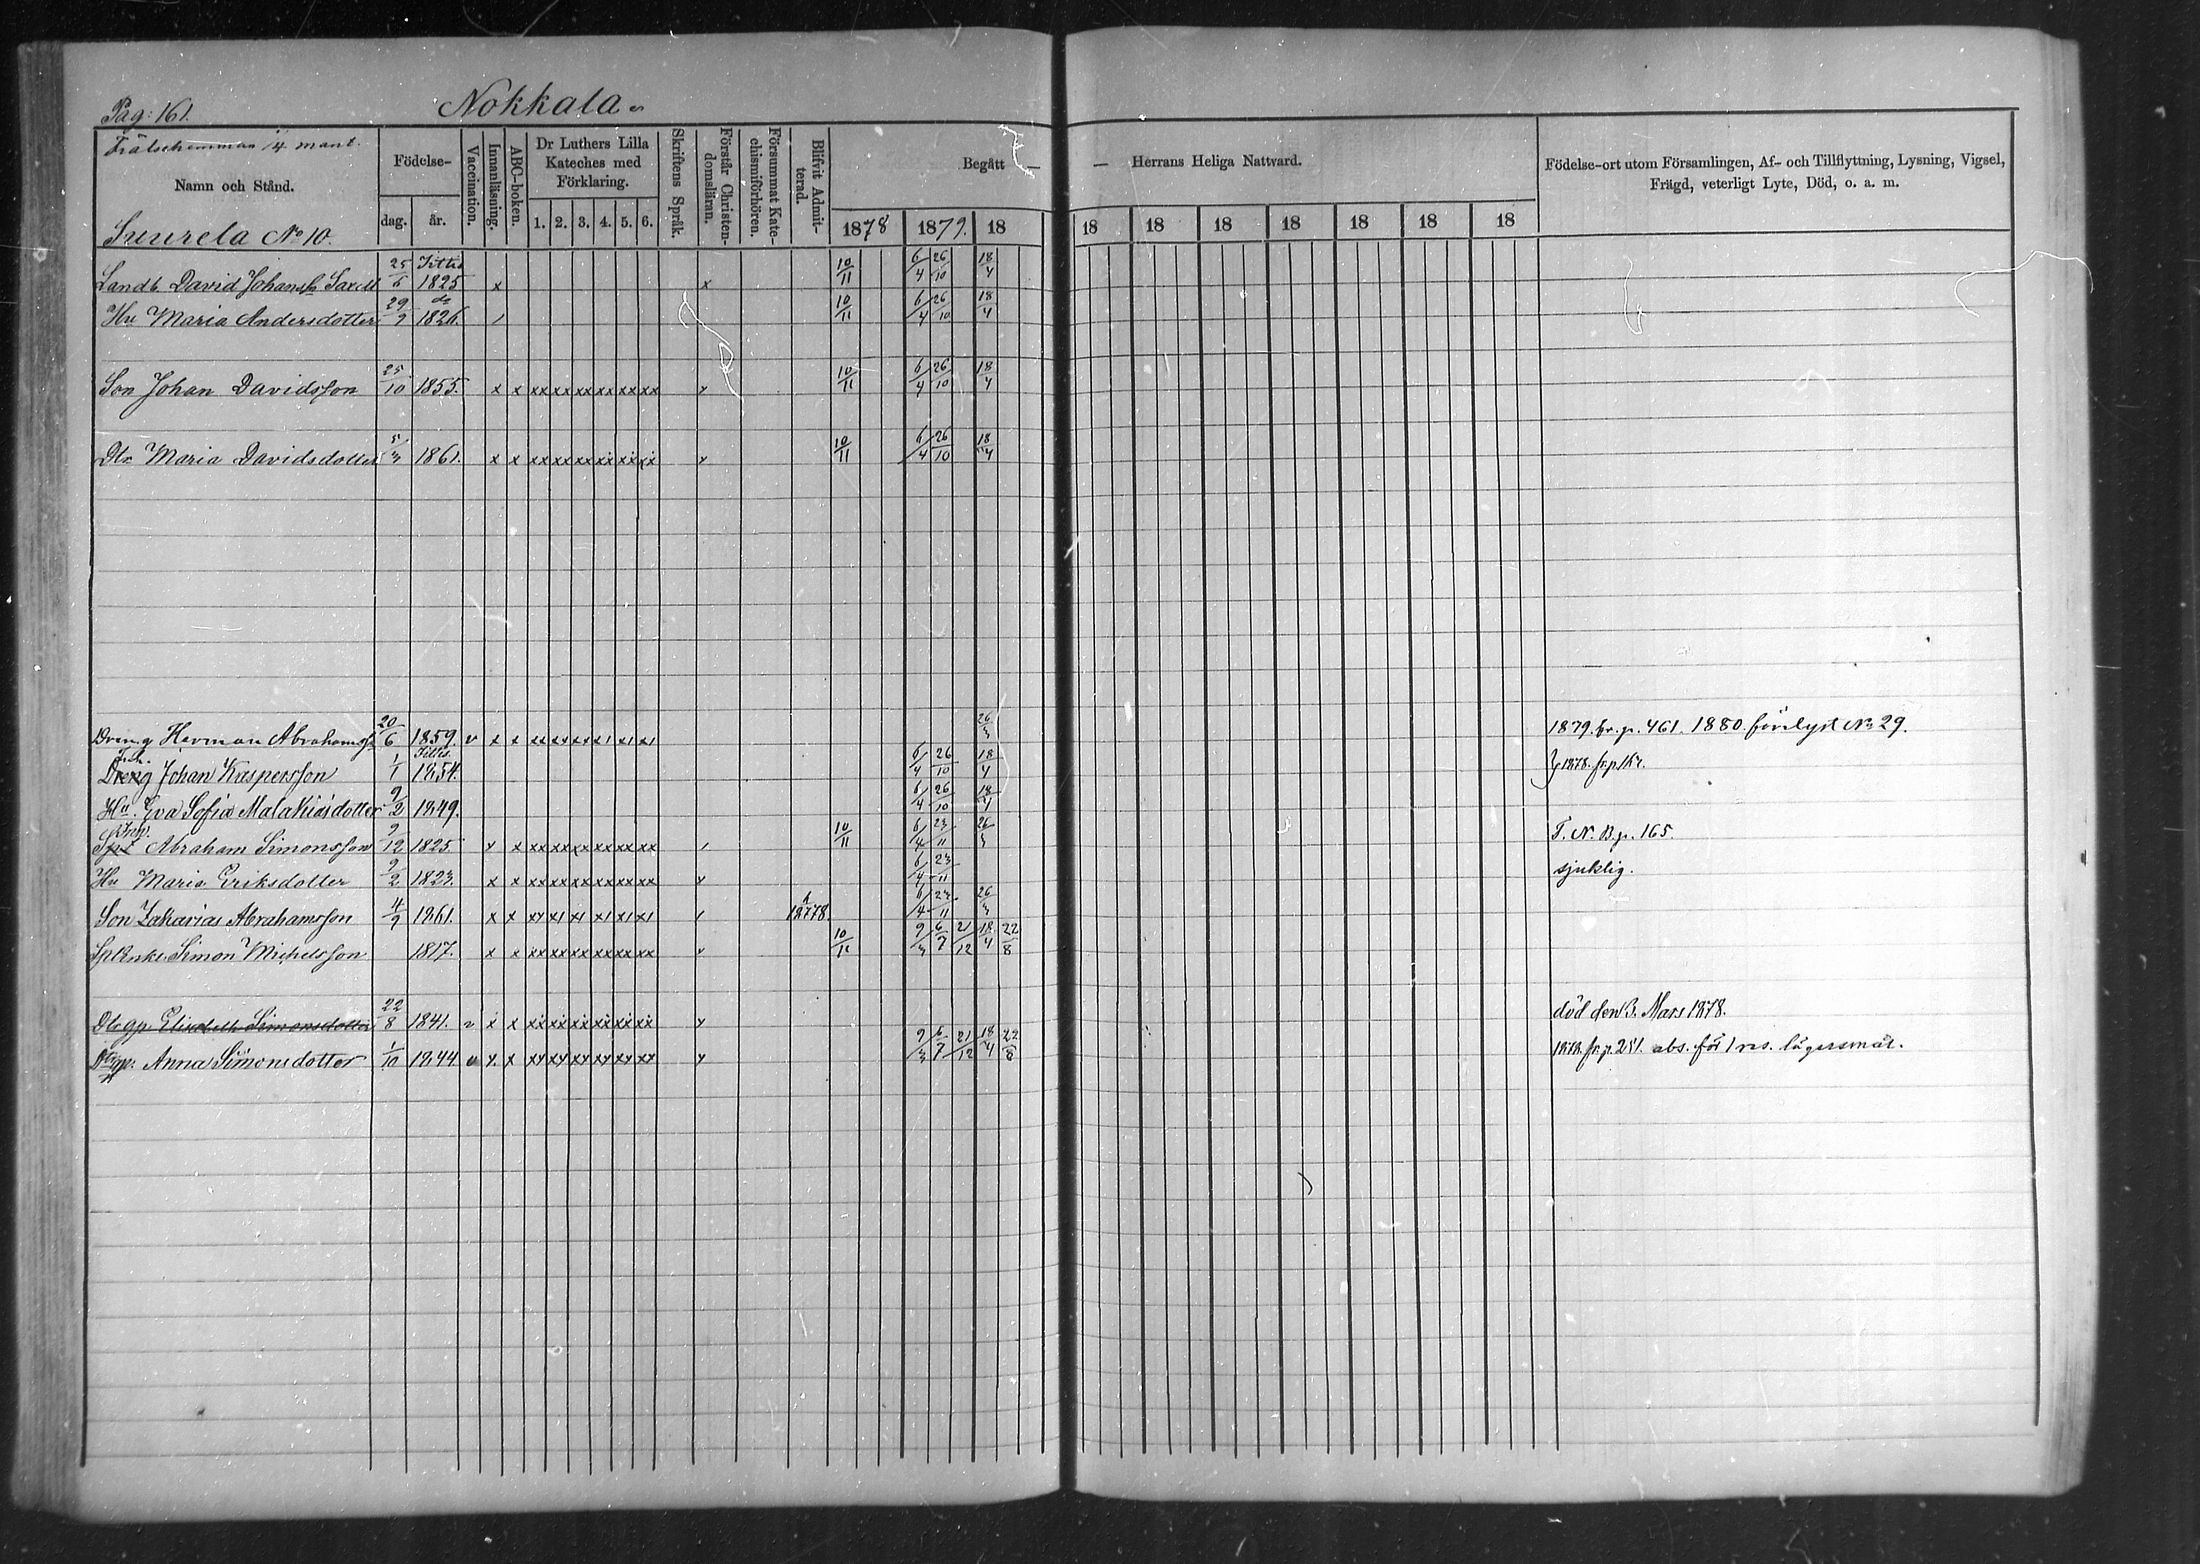 Pag: 161.
Nokkala
Frälsehemman 1/4 mant.
Namn och Stånd.
Suurela No 10.
Födelse-
dag. år.
Vaccination.
Innanläsning.
ABC-boken.
Dr Luthers Lilla Kateches med Förklaring.
1. 2. 3. 4. 5. 6.
Skriftens Språk.
Förstår Christendomsläran.
Försummat Katechismiförhören.
Blifvit Admitterad.
Begått — — Herrans Heliga Nattvard.
1878 1879. 18 18 18 18 18 18 18 18
Födelse-ort utom Församlingen, Af- och Tillflyttning, Lysning, Vigsel,
Frägd, veterligt Lyte, Död, o. a. m.
Landb. David Johansson 25/6 1825 x x 10/11 6/4 26/10 18/4
Hu Maria Andersdotter 29/9 1826. / 10/11 6/4 26/10 18/4
Son Johan Davidsson 25/10 1855. x x xx xx xx xx xx xx x 10/11 6/4 26/10 18/4
Dtr Maria Davidsdotter 5/3 1861. x x xx xx xx xx xx xx x 10/11 6/4 26/10 18/4
Dreng Herman Abrahamss 20/6 1859. v x x 26/3 1879. fr. p. 461. 1880. förelyst No 29.
Dreng Johan Kaspersson 1/1 1854. 6/4 26/10 18/4 1878. fr. p.
Hu. Eva Sofia Malakiasdotter 9/2 1849. 6/4 26/10 18/4
Abraham Simonsson 9/12 1825. x x xx xx xx xx xx xx / 10/11 6/4 23/11 26/3 T. N. B. p. 165.
Hu Maria Eriksdotter 9/2 1823. x x xx xx xx xx xx xx x 6/4 23/11 sjuklig.
Son Zakarias Abrahamsson 4/9 1861. x x xx x1 x1 x1 x1 x1 / 1878. 6/4 23/11 26/3
Enkl. Simon Michelsson 1817. x x xx xx xx xx xx xx x 10/11 9/3 6/7 21/12 18/4 22/8
Dtr gp. Elisabeth Simonsdotter 22/8 1841. v x x xx xx xx xx xx xx x död den 3. Mars 1878.
Dtr gp. Anna Simonsdotter 1/10 1844 v x x xx xx xx xx xx xx x 9/3 6/7 21/12 18/4 22/8 1878. fr. p. 251. abs. för 1 res. lägersmål.